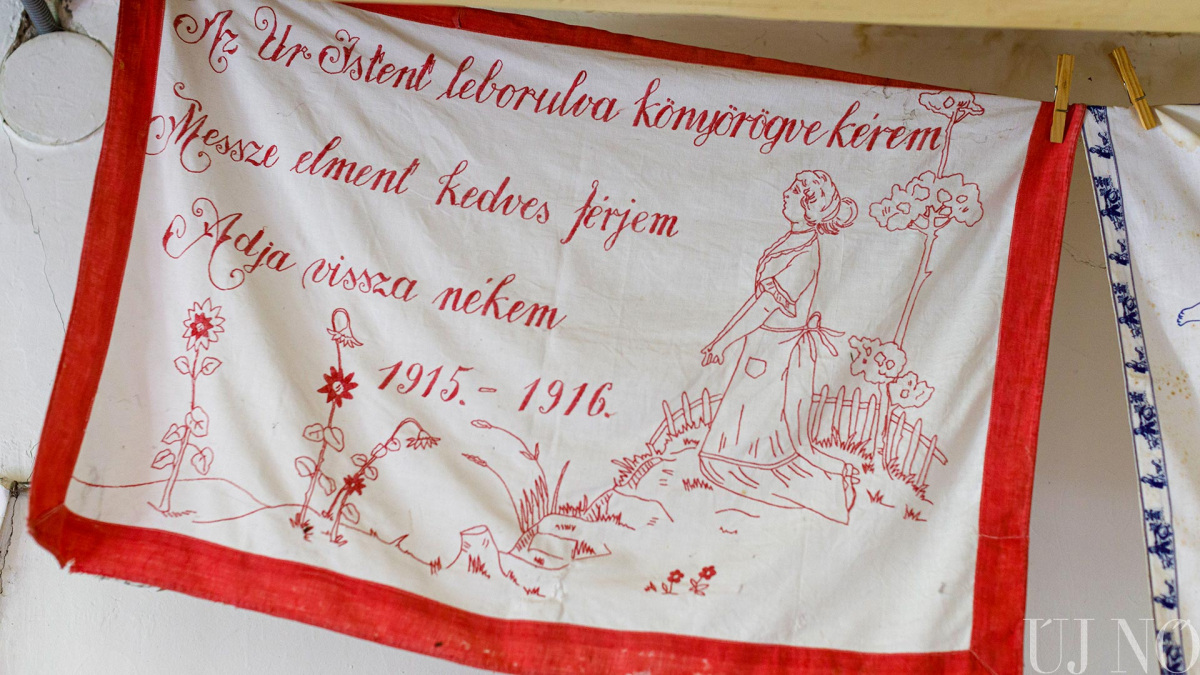 Az Úr Istent leborulva könyörögve kérem
Messze elment kedves férjem
Adja vissza nékem
1915.- 1916.
ÚJ NŐ